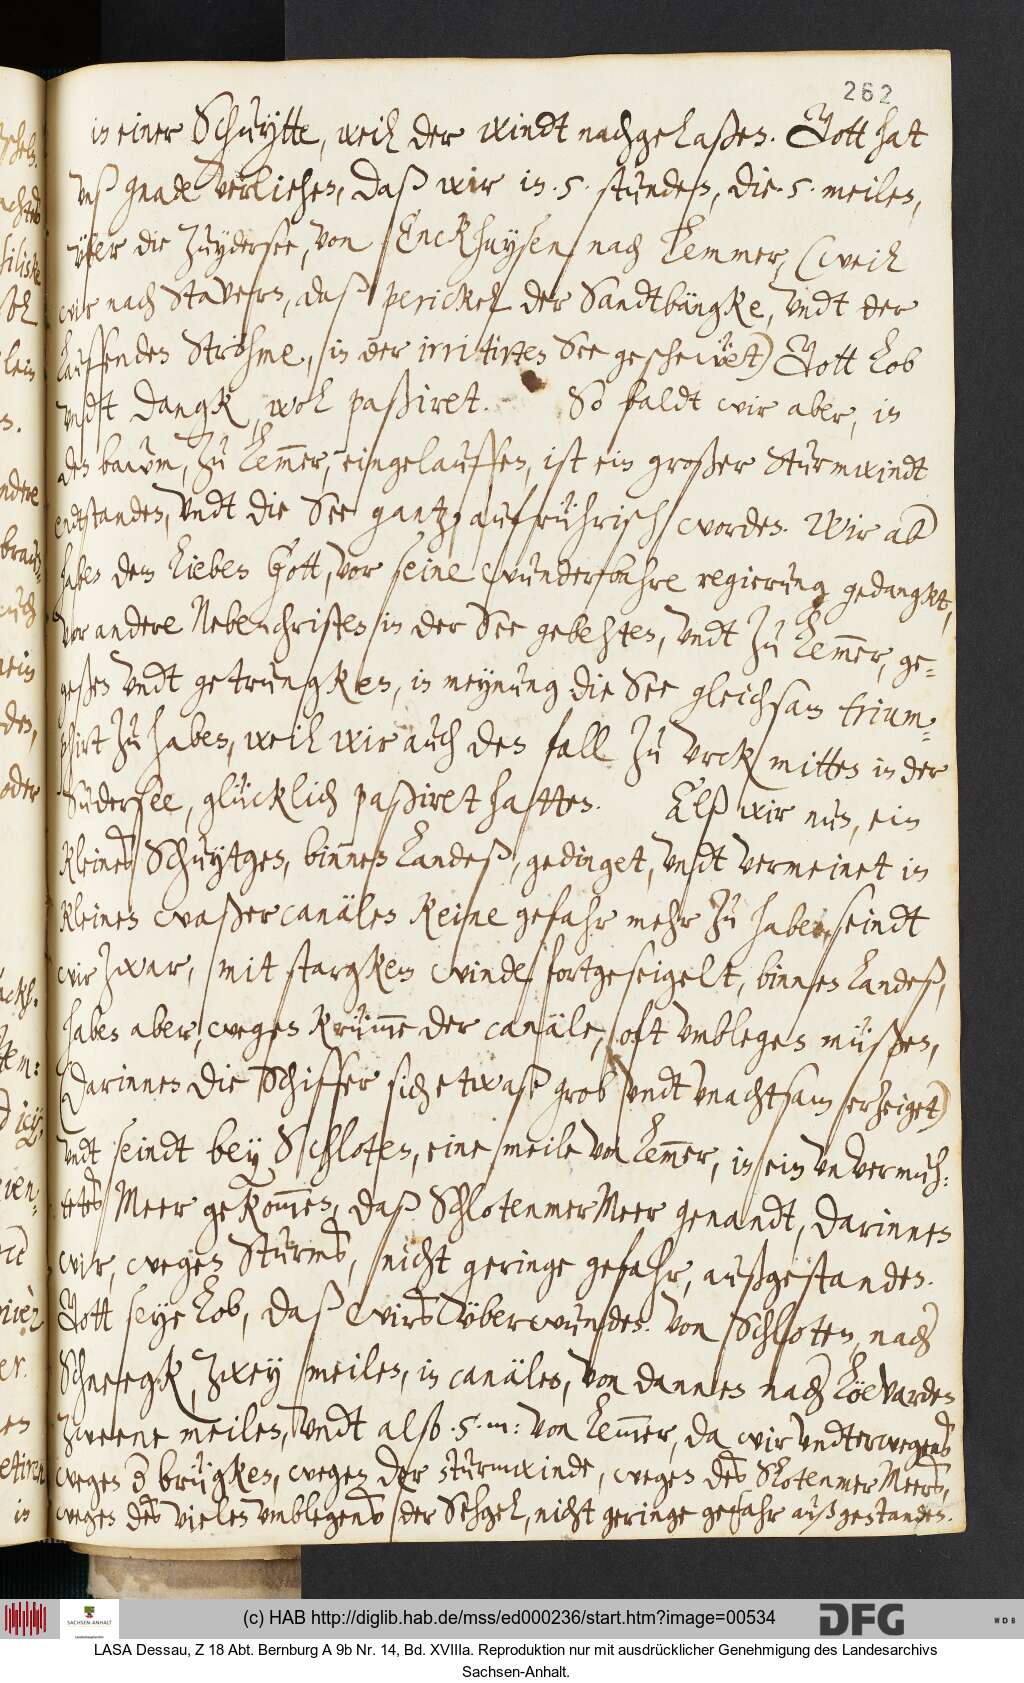 262
in einer Schuytte, weil der windt nachgelaßen. Gott hat
unß gnade verliehen, daß wir in .5. stunden, die .5. meilen,
über die Zuydersee, von Enckhuysen nach Lemmer, (weil
wir nach Stavern, daß perickel der Sandtbängke, undt der
lauffenden Ströhme, in der irritirten See geschewet) Gott lob
undt dangk, wol paßiret. So baldt wir aber, in
den bawm, zu Lem̅er, eingelauffen, ist ein großer Sturmwindt
endtstanden, undt die See gantz aufrührisch worden. Wir ab
haben dem lieben Gott, vor seine wunderbahre regierung gedangkt,
vor andere Nebenchristen in der See gebehten, undt zu Lem̅er, ge-
geßen undt getrungken, in meynung die See gleichsam trium-
phirt zu haben, weil wir auch den fall zu Urck mitten in der
Sudersee, glücklich paßiret hatten. Alß wir nun, ein
kleines Schuytgen, binnen Landeß, gedinget, undt vermeinet in
kleinen waßer canälen keine gefahr mehr zu haben, seindt
wir zwar, mit stargkem winde fortgeseigelt, binnen Landeß,
haben aber, wegen krüm̅e der canäle, oft umblegen müßen,
(darinnen die Schiffer sich etwaß grob undt unachtsam erzeiget)
undt seindt bey Schloten, eine meile von Lem̅er, in ein unvermuh-
tetes Meer gekom̅en, daß SchlotenmerMeer genandt, darinnen
wir, wegen Sturms, nicht geringe gefahr, außgestanden.
Gott seye lob, daß wirs überwunden. Von Schloten, nach
Schneegk, zwey meilen, in canälen, von dannen nach Löewarden
zweene meilen, undt also .5. m: von Lem̅er, da wir undterwegens
wegen d brügken, wegen der sturmwinde, wegen des SlotenmerMeers,
wegen des vielen umblegens der Sehgel, nicht geringe gefahr außgestanden.
in
(c) HAB http://diglib.hab.de/mss/ed000236/start.htm?image=00534
SACHSEN-ANHALT
DFG
WDB
LASA Dessau, Z 18 Abt. Bernburg A 9b Nr. 14, Bd. XVIIIa. Reproduktion nur mit ausdrücklicher Genehmigung des Landesarchivs
Sachsen-Anhalt.